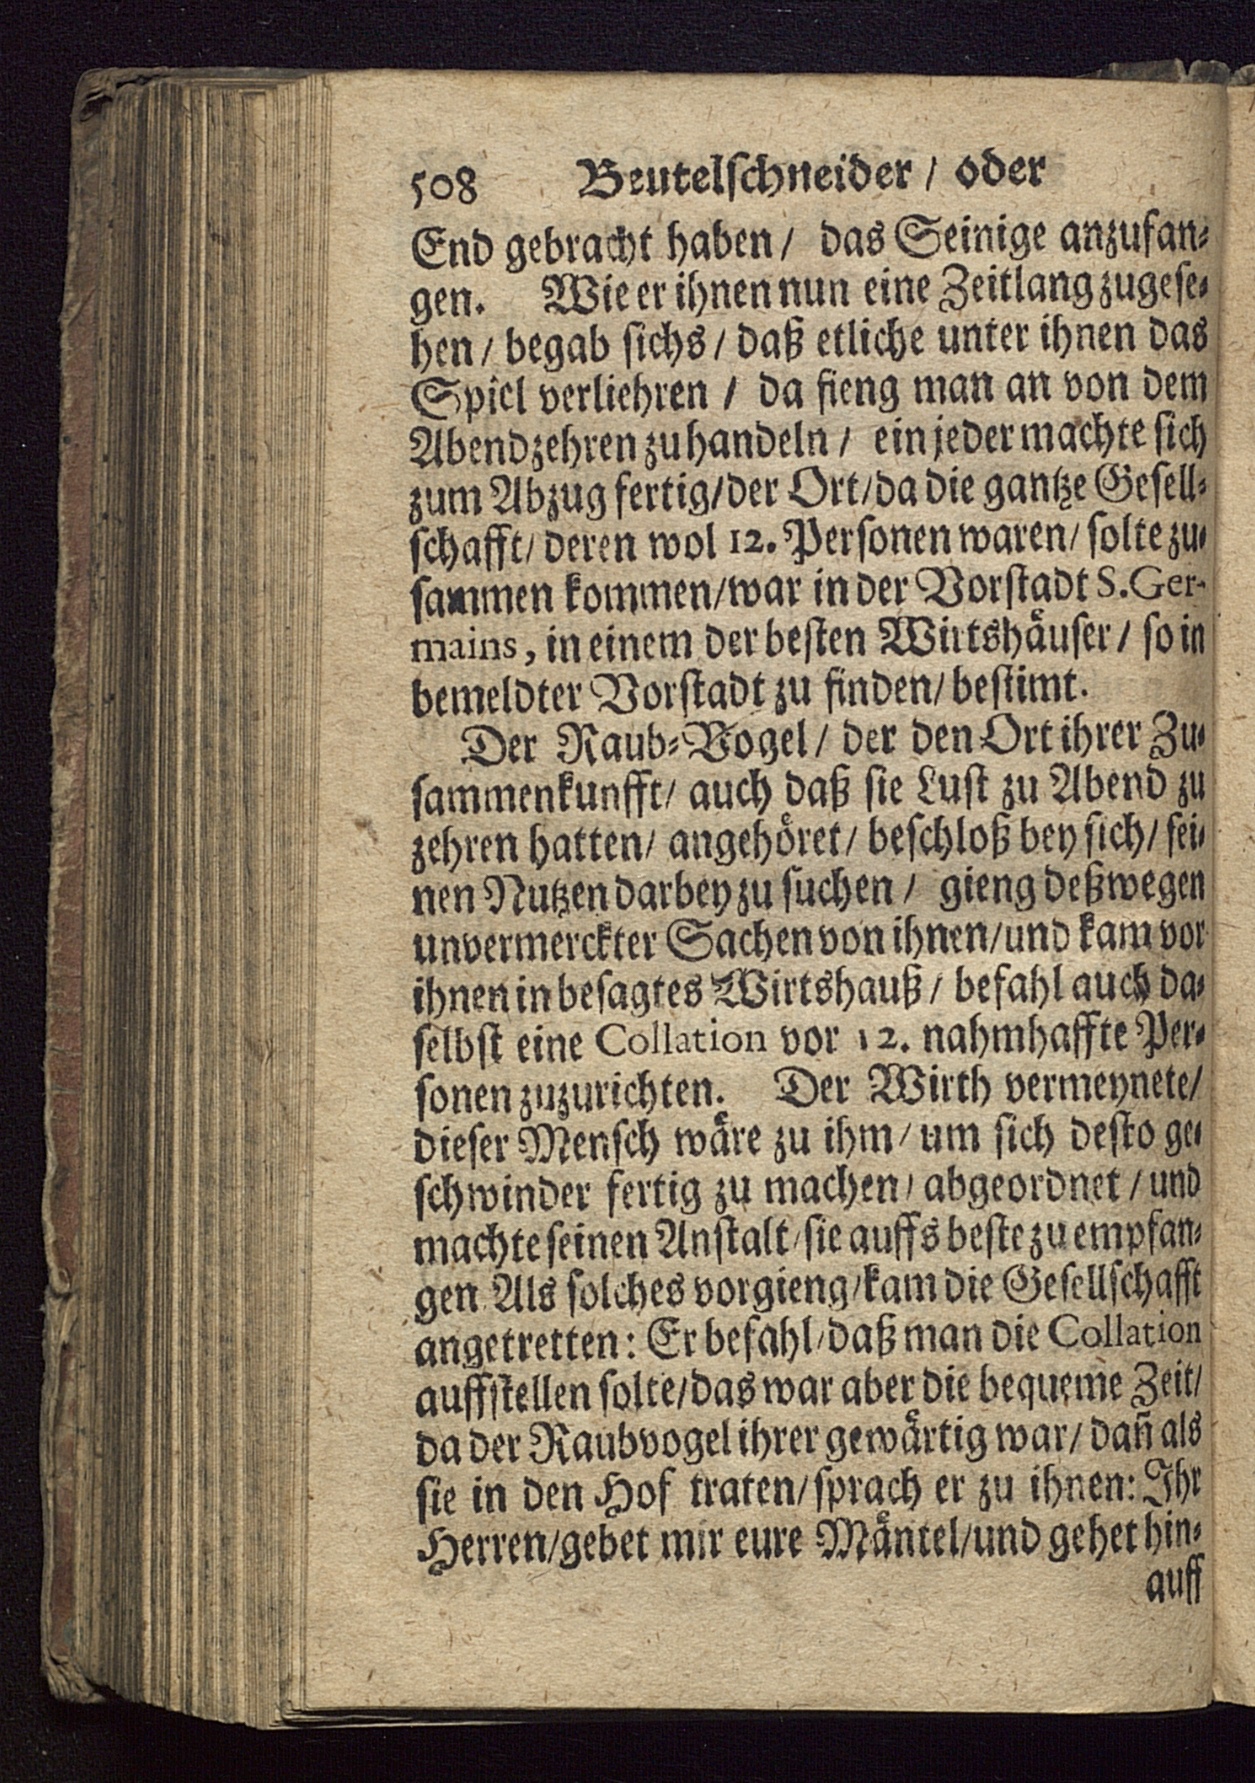 508 Beutelschneider / oder
End gebracht haben / das Seinige anzufan-
gen. Wie er ihnen nun eine Zeitlang zugese-
hen / begab sichs / daß etliche unter ihnen das
Spiel verliehren / da fieng man an von dem
Abendzehren zu handeln / ein jeder machte sich
zum Abzug fertig/der Ort/da die gantze Gesell-
schafft/ deren wol 12. Personen waren/ solte zu-
sammen kommen/war in der Vorstadt S.Ger-
mains, in einem der besten Wirtshäuser / so in
bemeldter Vorstadt zu finden/ bestimt.
Der Raub-Vogel / der den Ort ihrer Zu-
sammenkunfft/ auch daß sie Lust zu Abend zu
zehren hatten/ angehöret/ beschloß bey sich/ sei-
nen Nutzen darbey zu suchen / gieng deßwegen
unvermerckter Sachen von ihnen/und kam vor
ihnen in besagtes Wirtshauß / befahl auch da-
selbst eine Collation vor 12. nahmhaffte Per-
sonen zuzurichten. Der Wirth vermeynete/
dieser Mensch wäre zu ihm / um sich desto ge-
schwinder fertig zu machen / abgeordnet / und
machte seinen Anstalt/sie auffs beste zu empfan-
gen Als solches vorgieng/kam die Gesellschafft
angetretten: Er befahl/daß man die Collation
auffstellen solte/das war aber die bequeme Zeit/
da der Raubvogel ihrer gewärtig war/ dañ als
sie in den Hof traten/sprach er zu ihnen: Ihr
Herren/gebet mir eure Mäntel/und gehet hin-
auff